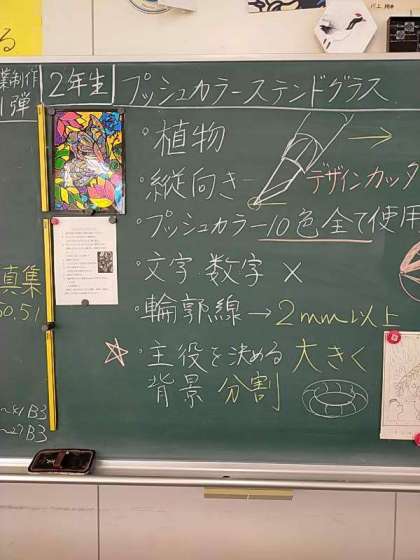 業制作
1弾
2年生
プッシュカラーステンドグラス
・植物
・縦向き
デザインカッタ
・プッシュカラー10色全て使用
・文字.数字 ×
・輪郭線→2mm以上
☆・主役を決める 大きく
背景 分割
真集
50.51
B3
~27B3